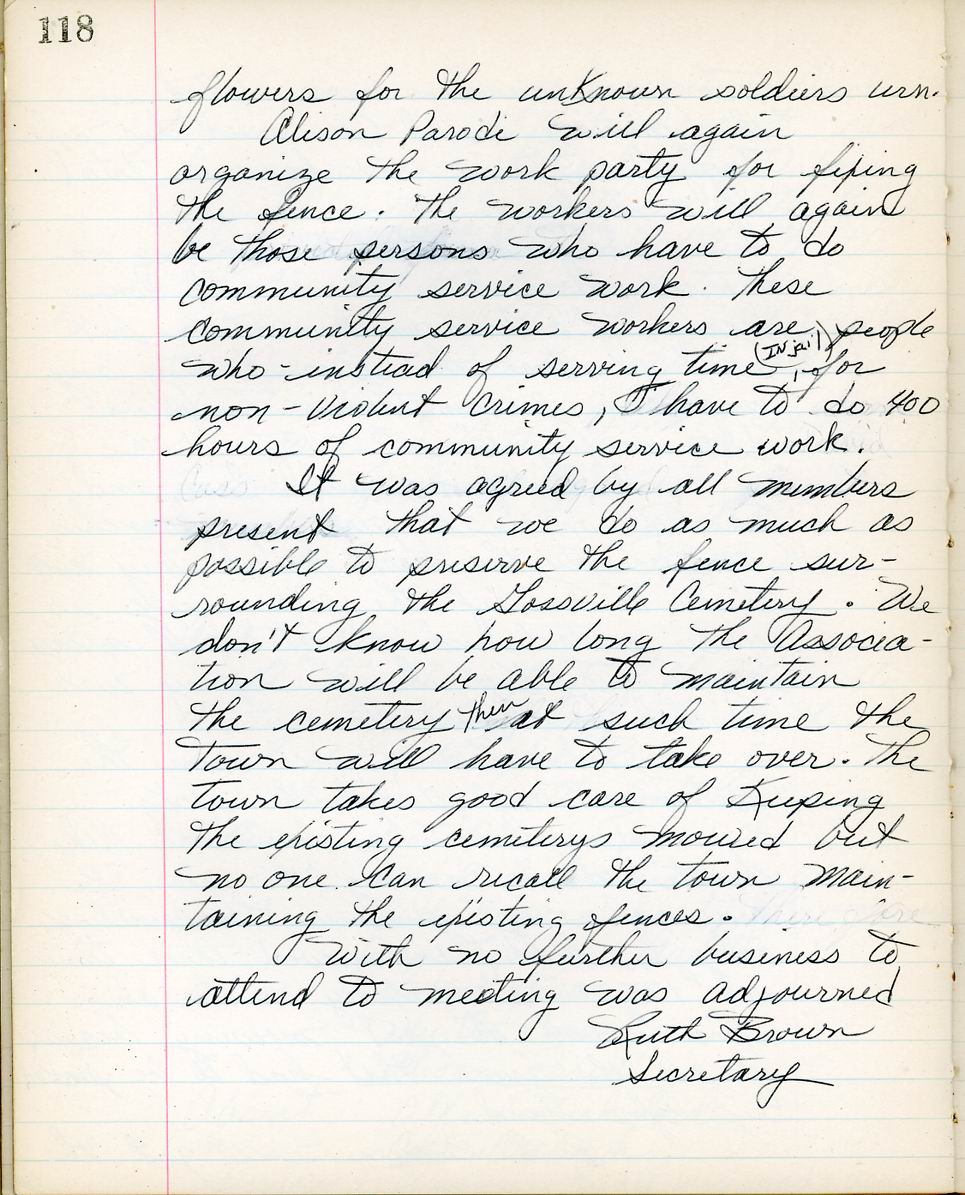 118
flowers for the unknown soldiers urn.
Alison Parodi will again
organize the work party for fixing
the fence. The workers will again
be those persons who have to do
community service work. These
community service workers are people
who - instead of serving time (IN jail), for
non-violent crimes, have to do 400
hours of community service work.
It was agreed by all members
present that we do as much as
possible to preserve the fence sur-
rounding the Gossville Cemetery. We
don't know how long the Associa-
tion will be able to maintain
the cemetery then at such time the
Town will have to take over. The
town takes good care of Keeping
the existing cemeterys mowed but
no one can recall the town main-
taining the existing fences.
With no further business to
attend to meeting was adjourned
Ruth Brown
Secretary